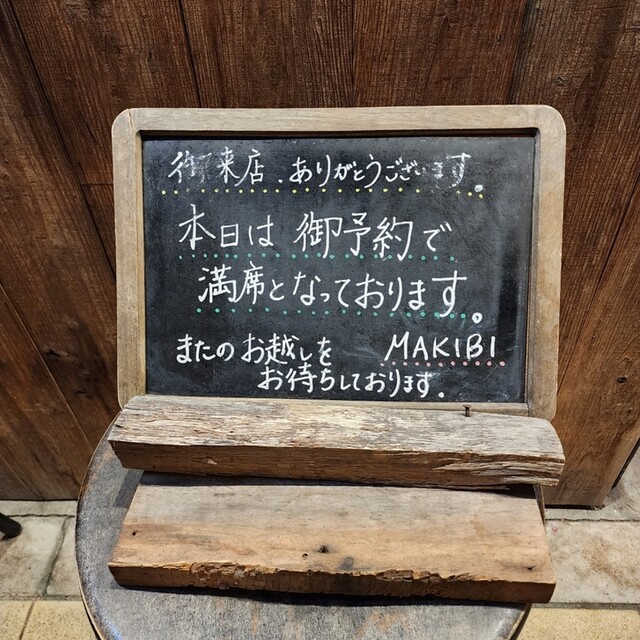 御来店、ありがとうございます。
本日は 御予約で
満席となっております。
またのお越しを
お待ちしております。
MAKIBI